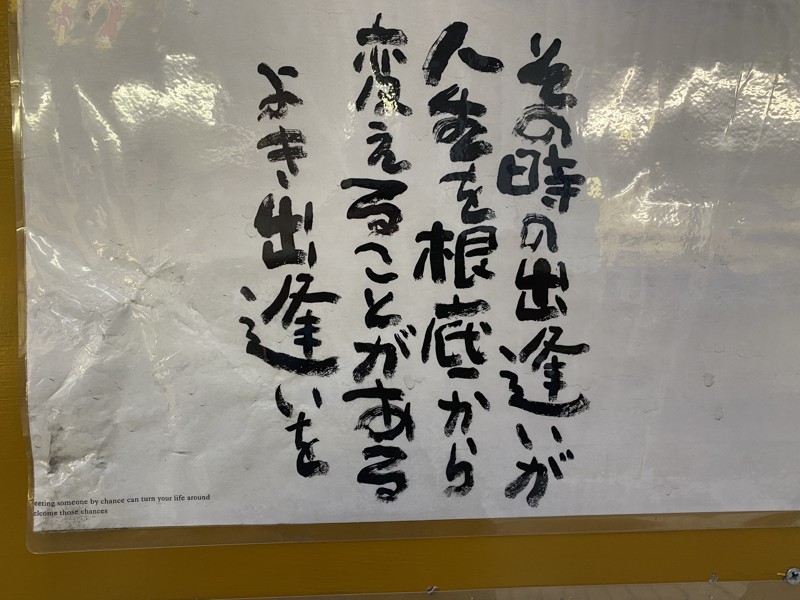 その時の出逢いが
人生を根底から
変えることがある
よき出逢いを
eeting someone by chance can turn your life around
elcome those chances